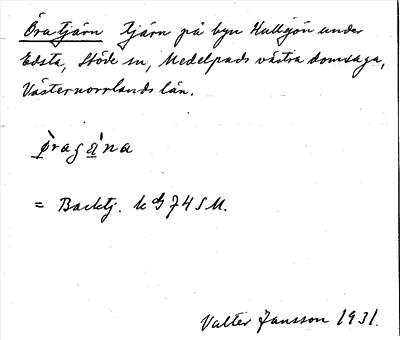 Öratjärn tjärn på byn Hullsjön under
Edsta, Stöde sn, Medelpads västra domsaga,
Västernorrlands län.
= Backtj. k G 74 S M.
Valter Jansson 1931.